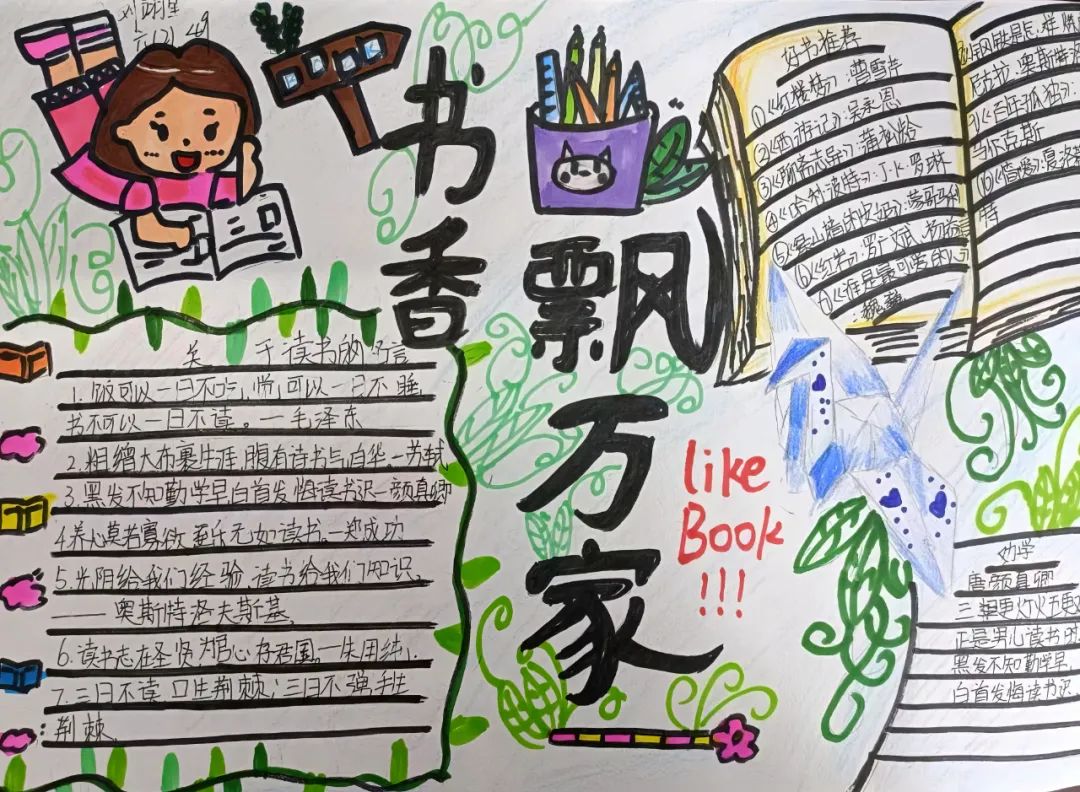 六(2) 49
书香飘万家
好书推荐
①《红楼梦》:曹雪芹
②《西游记》:吴承恩
③《聊斋志异》:蒲松龄
④《哈利波特》:J·K·罗琳
⑤《
⑥《红岩》:罗广斌、杨益
⑦《谁是最可爱的人》
:魏巍
《钢铁是怎样炼
:奥斯特洛
《百年孤独》:
马尔克斯
《简爱》:夏洛蒂
特
关于读书的名言
1.饭可以一日不吃,觉可以一日不睡,
书不可以一日不读。—毛泽东
2.粗缯大布裹生涯,腹有诗书气自华.—苏轼
3.黑发不知勤学早白首发悔读书迟—颜真卿
4.养心莫若寡欲至乐无如读书.—郑成功
5.光阴给我们经验,读书给我们知识。
——奥斯特洛夫斯基
6.读书志在圣贤为官心存君国。—朱用纯.
7.三日不读,口生荆棘;三日不弹,手生
荆棘.
like
Book
!!!
劝学
唐颜真卿
三更灯火五更
正是男儿读书时
黑发不知勤学早,
白首发悔读书迟